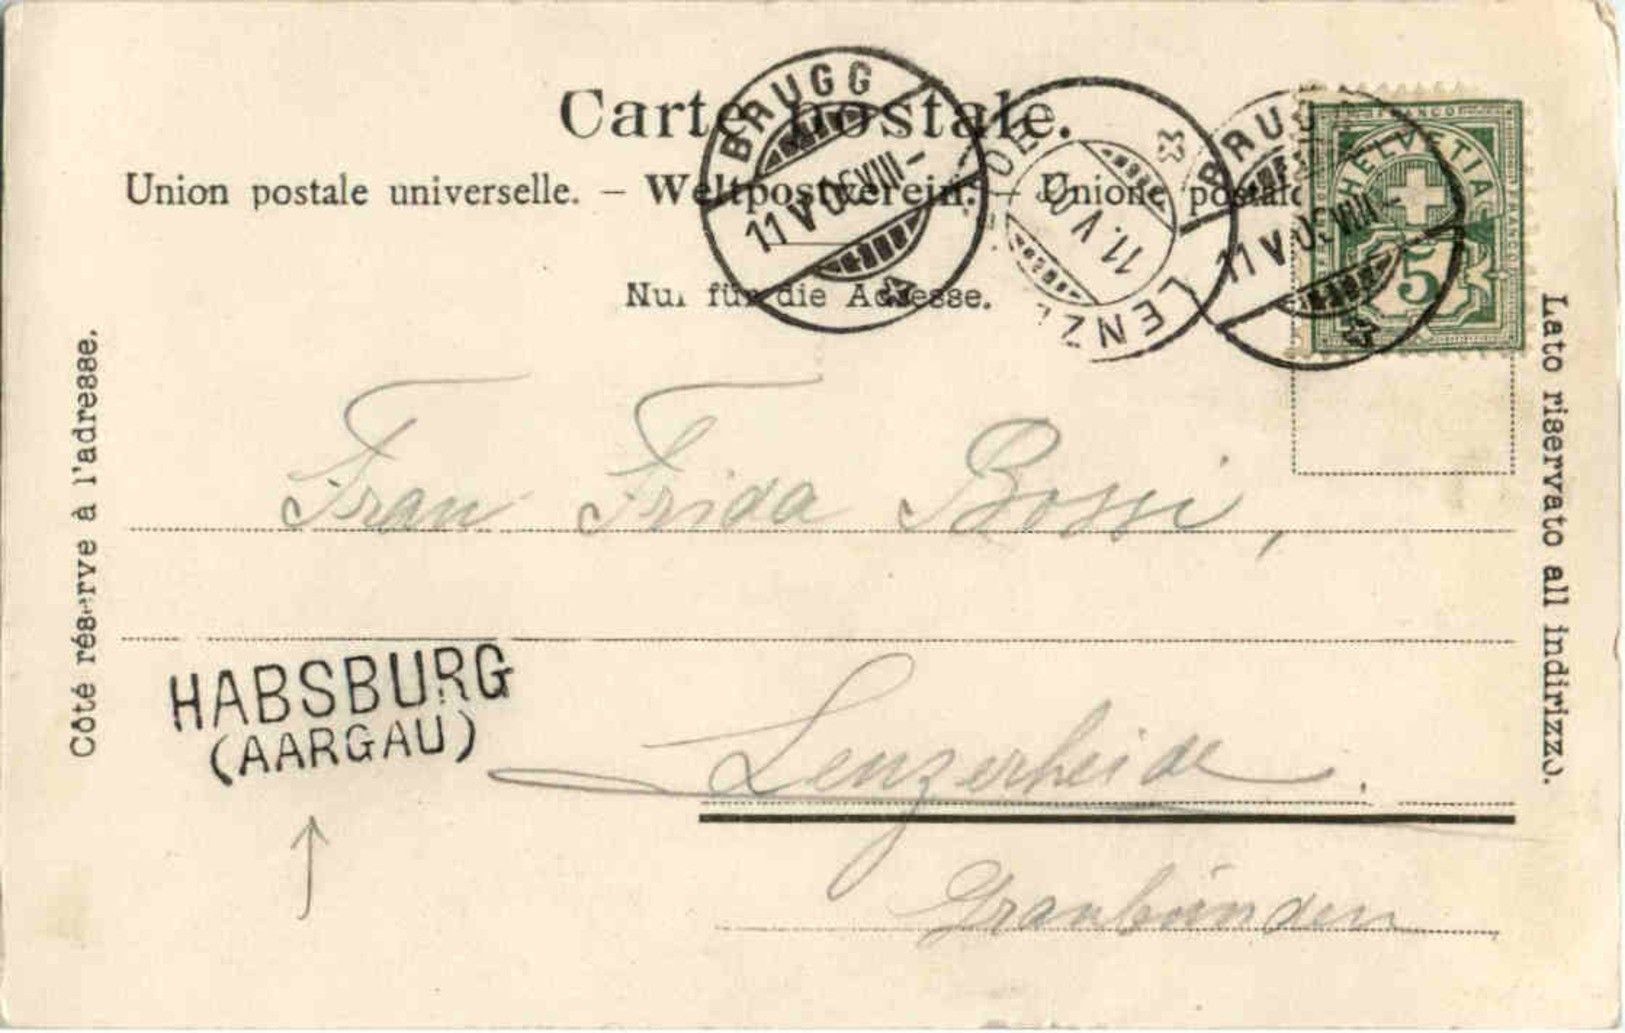 Carte postale.
Union postale universelle. – Weltpostverein. – Unione postale
Nur für die Adresse.
BRUGG
11 V 05 VIII –
LENZ
11. V. 05
BRUGG
11 V 05 VIII –
FRANCO
HELVETIA
FRANCO
5
Côté réservé à l'adresse.
Lato riservato all indirizzo.
Frau Frida Bossi,
HABSBURG
(AARGAU)
Lenzerheide.
Graubünden